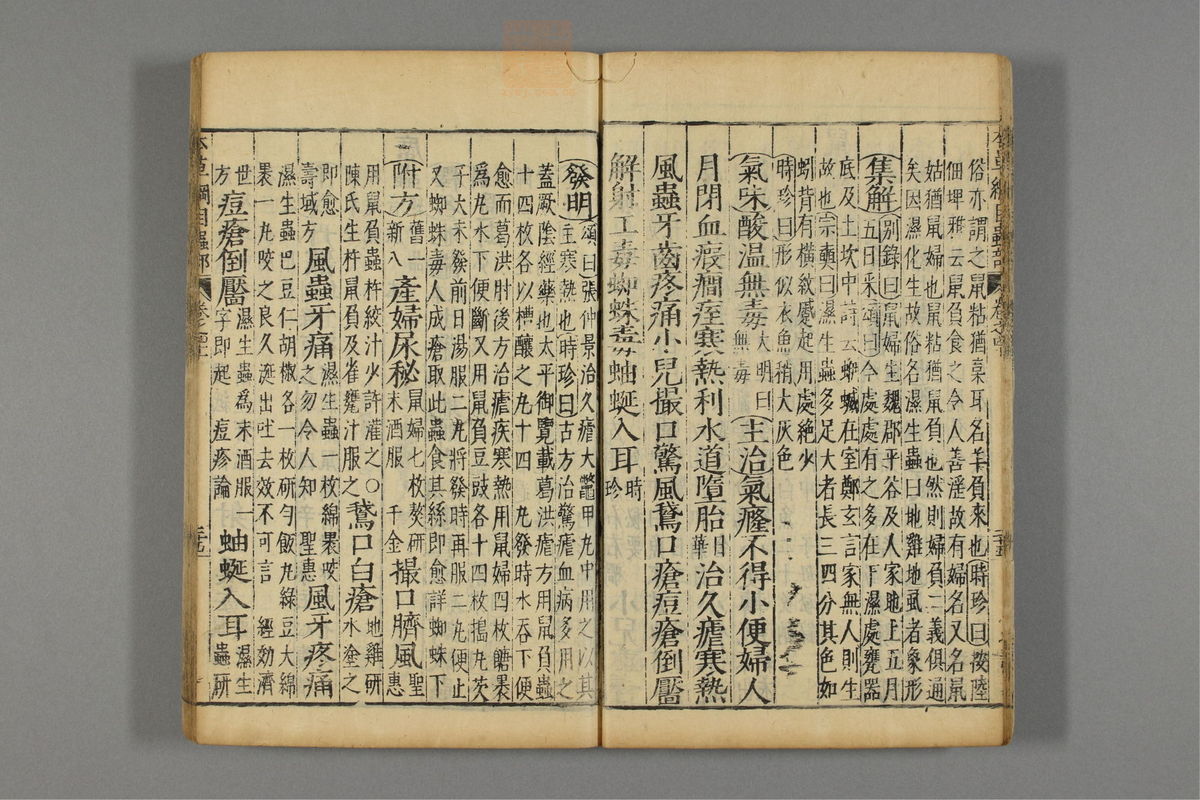 俗亦謂之鼠粘猶葈耳名羊負來也時珍曰按陸
佃埤雅云鼠負食之令人善淫故有婦名又名鼠
姑猶鼠婦也鼠粘猶鼠負也然則婦負二義俱通
矣因濕化生故俗名濕生蟲曰地雞地虱者象形
集解 別錄曰鼠婦生魏郡平谷及人家地上五月
五日采頌曰今處處有之多在下濕處甕器
底及土坎中詩云蛜蝛在室鄭玄言家無人則生
故也宗奭曰濕生蟲多足大者長三四分其色如
蚓背有橫紋蹙起用處絕少
時珍曰形似衣魚稍大灰色
氣味酸温無毒大明曰無毒主治氣癃不得小便婦人
月閉血瘕癎痓寒熱利水道墮胎日華治久瘧寒熱
風蟲牙齒疼痛小兒撮口驚風鵞口瘡痘瘡倒靨
解射工毒蜘蛛毒蚰蜒入耳時珍
發明 頌曰張仲景治久瘧大鼈甲丸中用之以其
主寒熱也時珍曰古方治驚瘧血病多用之
蓋厥陰經藥也太平御覽載葛洪瘧方用鼠負蟲
十四枚各以糟釀之丸十四丸發時水吞下便
愈而葛洪肘後方治瘧疾寒熱用鼠婦四枚糖裹
為丸水下便斷又用鼠負豆豉各十四枚搗丸芡
子大未發前日湯服二丸將發時再服二丸便止
又蜘蛛毒人成瘡取此蟲食其絲即愈詳蜘蛛下
附方舊一新八產婦尿秘鼠婦七枚熬研末酒服 千金撮口臍風聖惠
用鼠負蟲杵絞汁少許灌之○陳氏生杵鼠負及雀甕汁服之鵞口白瘡地雞研水塗之
即愈壽域方風蟲牙痛濕生蟲一枚綿裹咬之勿令人知 聖惠風牙疼痛
濕生蟲巴豆仁胡椒各一枚研勻飯丸綠豆大綿
裹一丸咬之良久涎出吐去效不可言 經効濟
世方痘瘡倒靨濕生蟲為末酒服一字即起 痘疹論蚰蜒入耳濕生蟲研
本草綱目蟲部